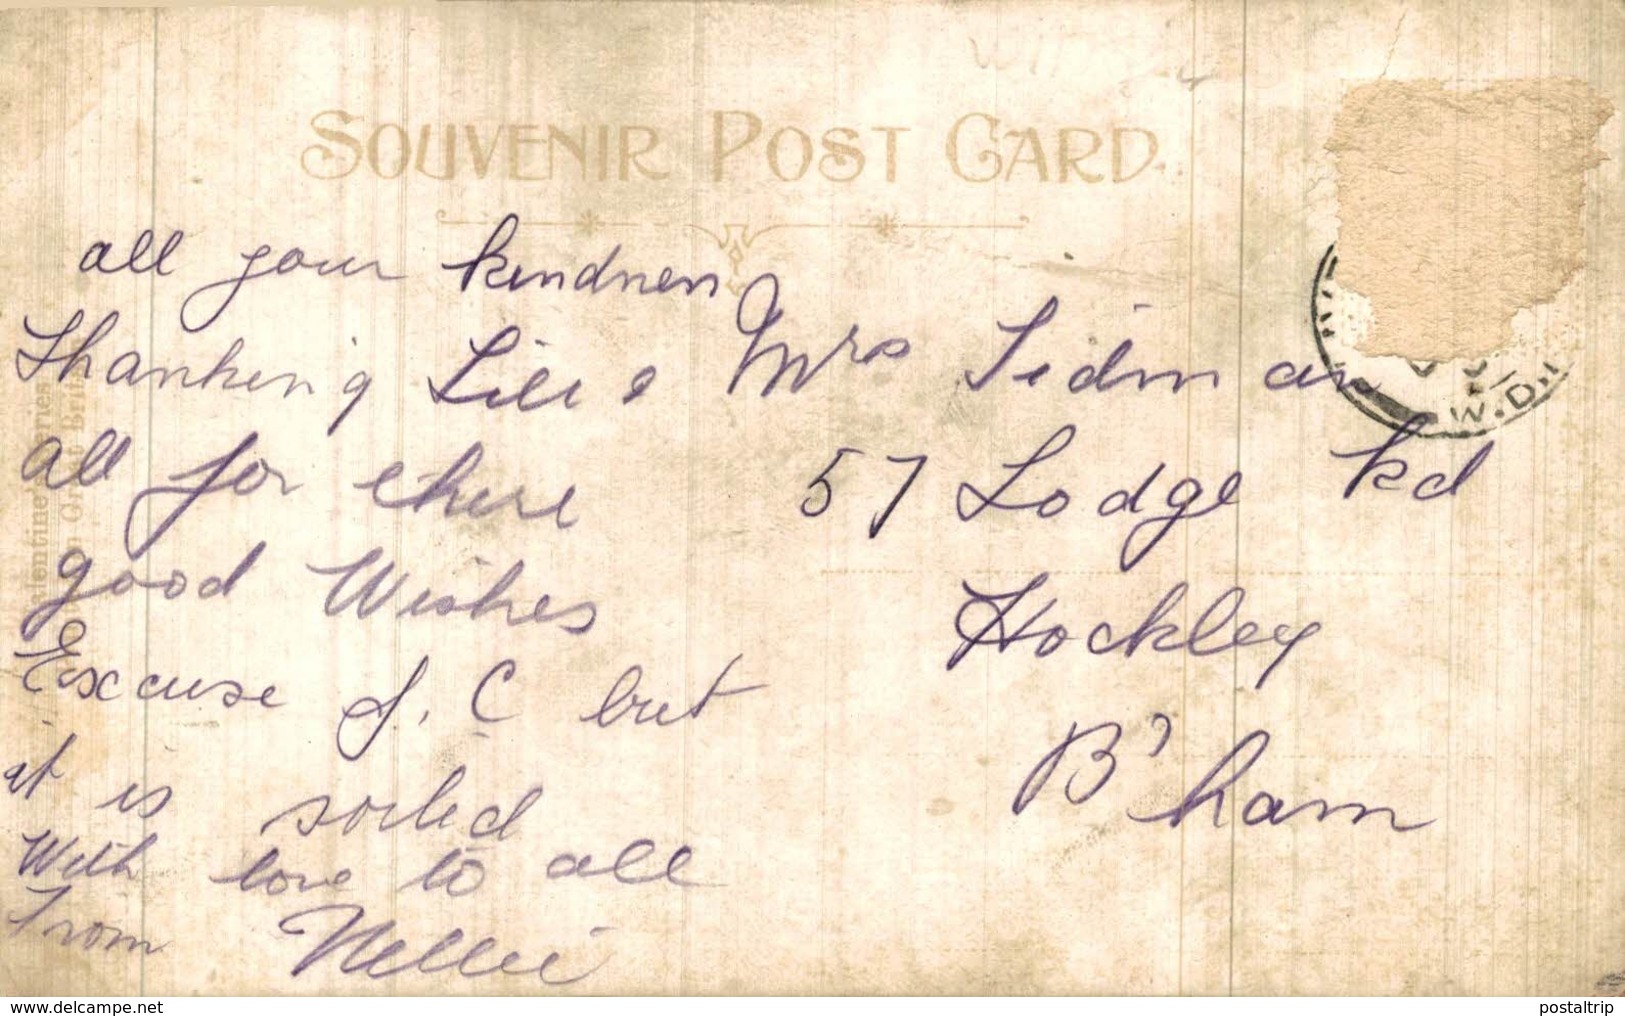 SOUVENIR POST CARD
all your kindness
Thanking Lill &
all for there
good Wishes
Excuse P. C but
it is soiled
With love to all
From Nellie
Mrs Tidman
57 Lodge Rd
Hockley
B'ham
W.D.
www.delcampe.net
postaltrip